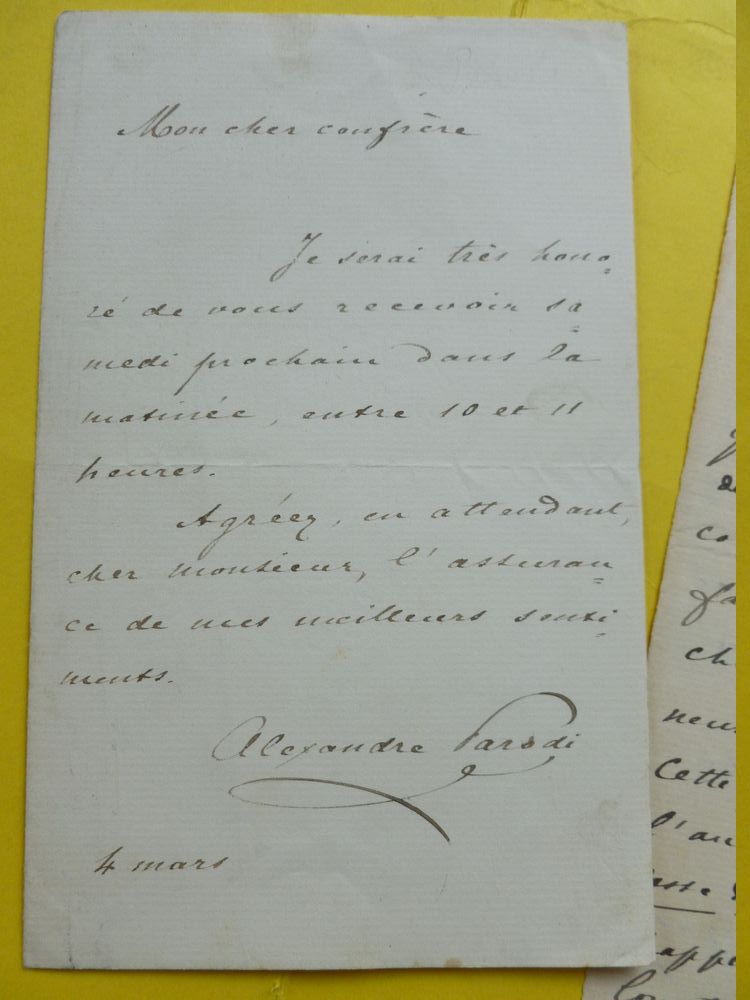 Mon cher confrère
Je serai très hono=
ré de vous recevoir sa=
medi prochain dans la
matinée, entre 10 et 11
heures.
Agréez, en attendant,
cher monsieur, l'assuran=
ce de mes meilleurs senti=
ments.
Alexandre Parodi
4 mars
co
fa
ch
neu
Cette
l'au